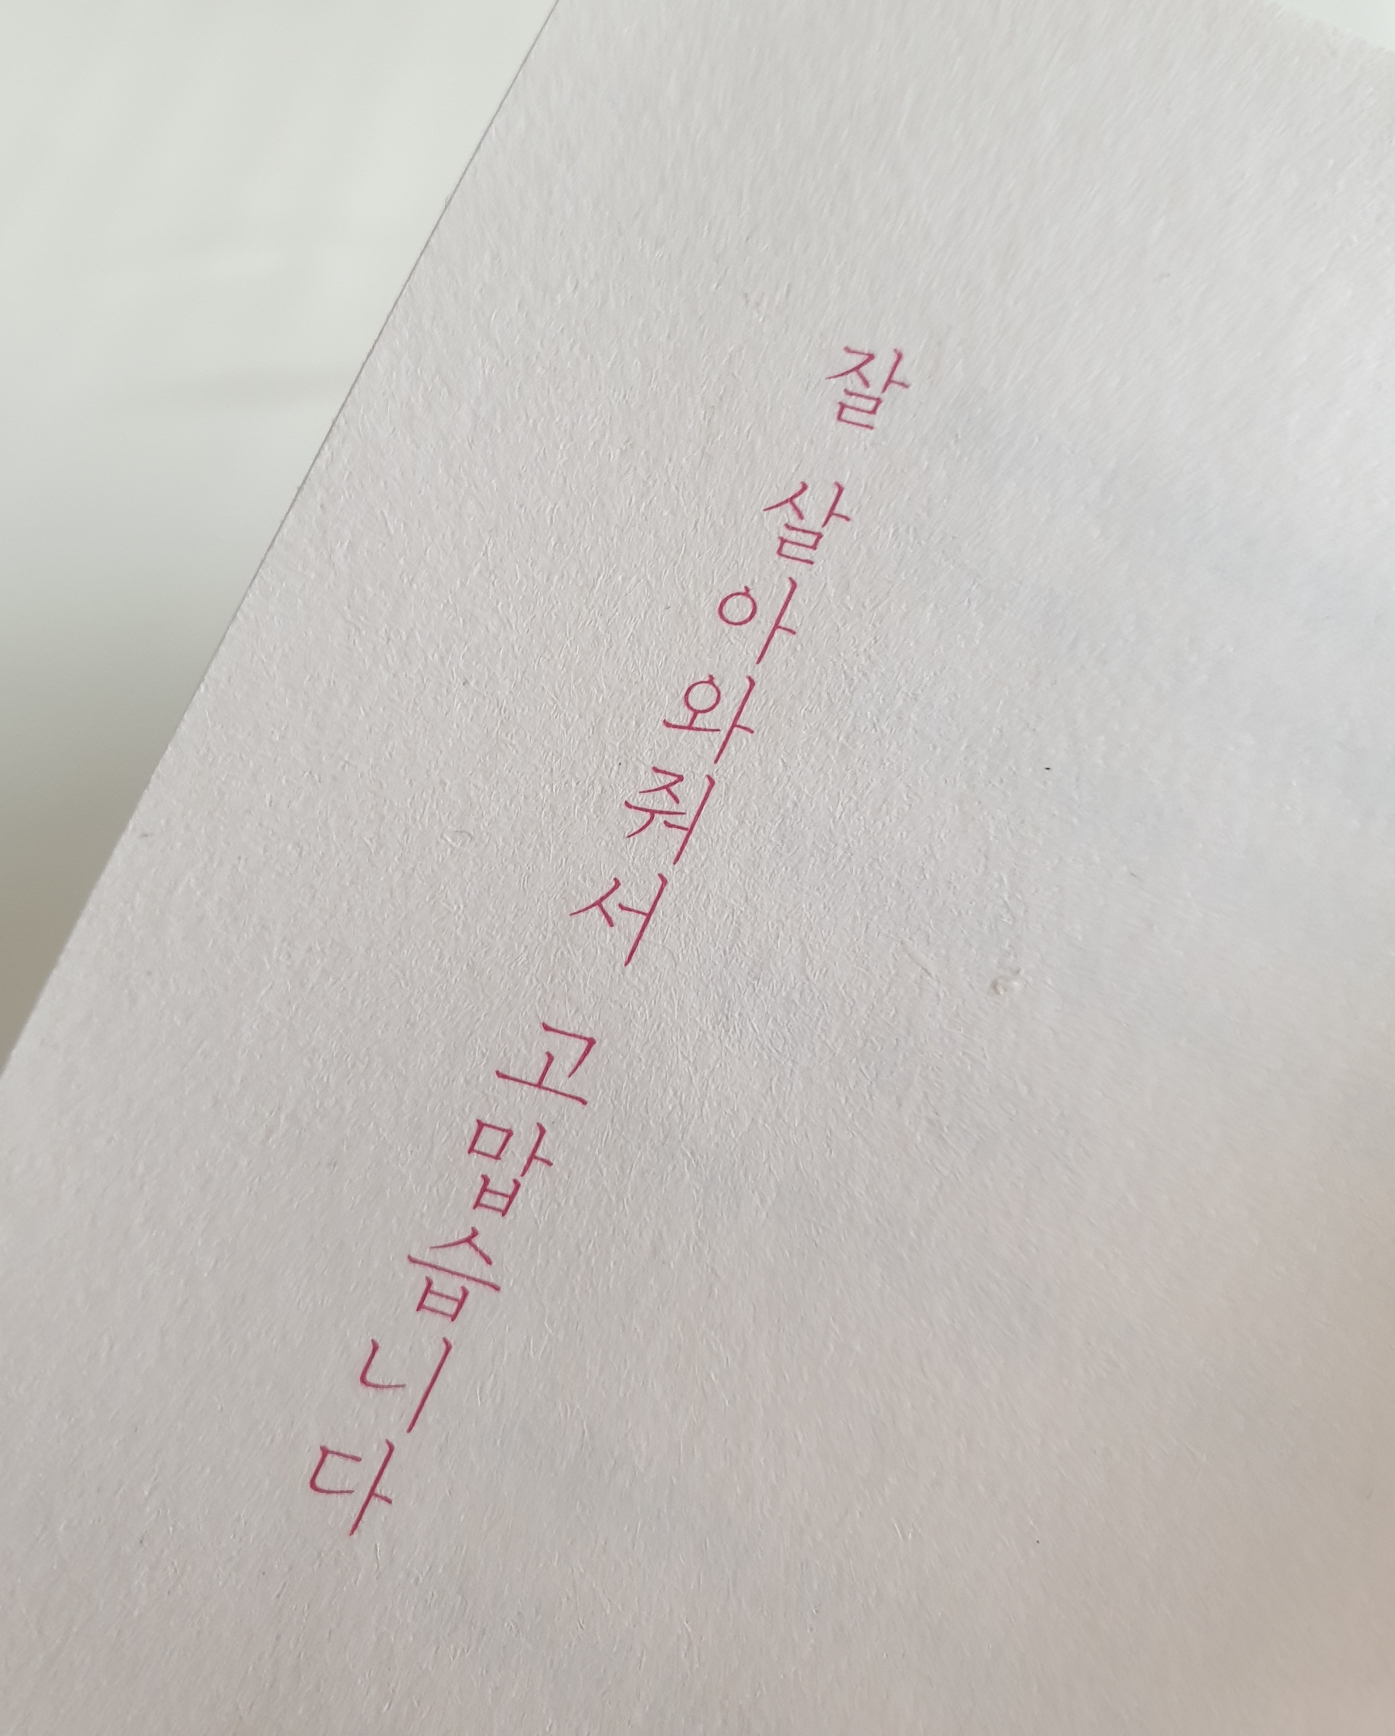 잘 살아와줘서 고맙습니다